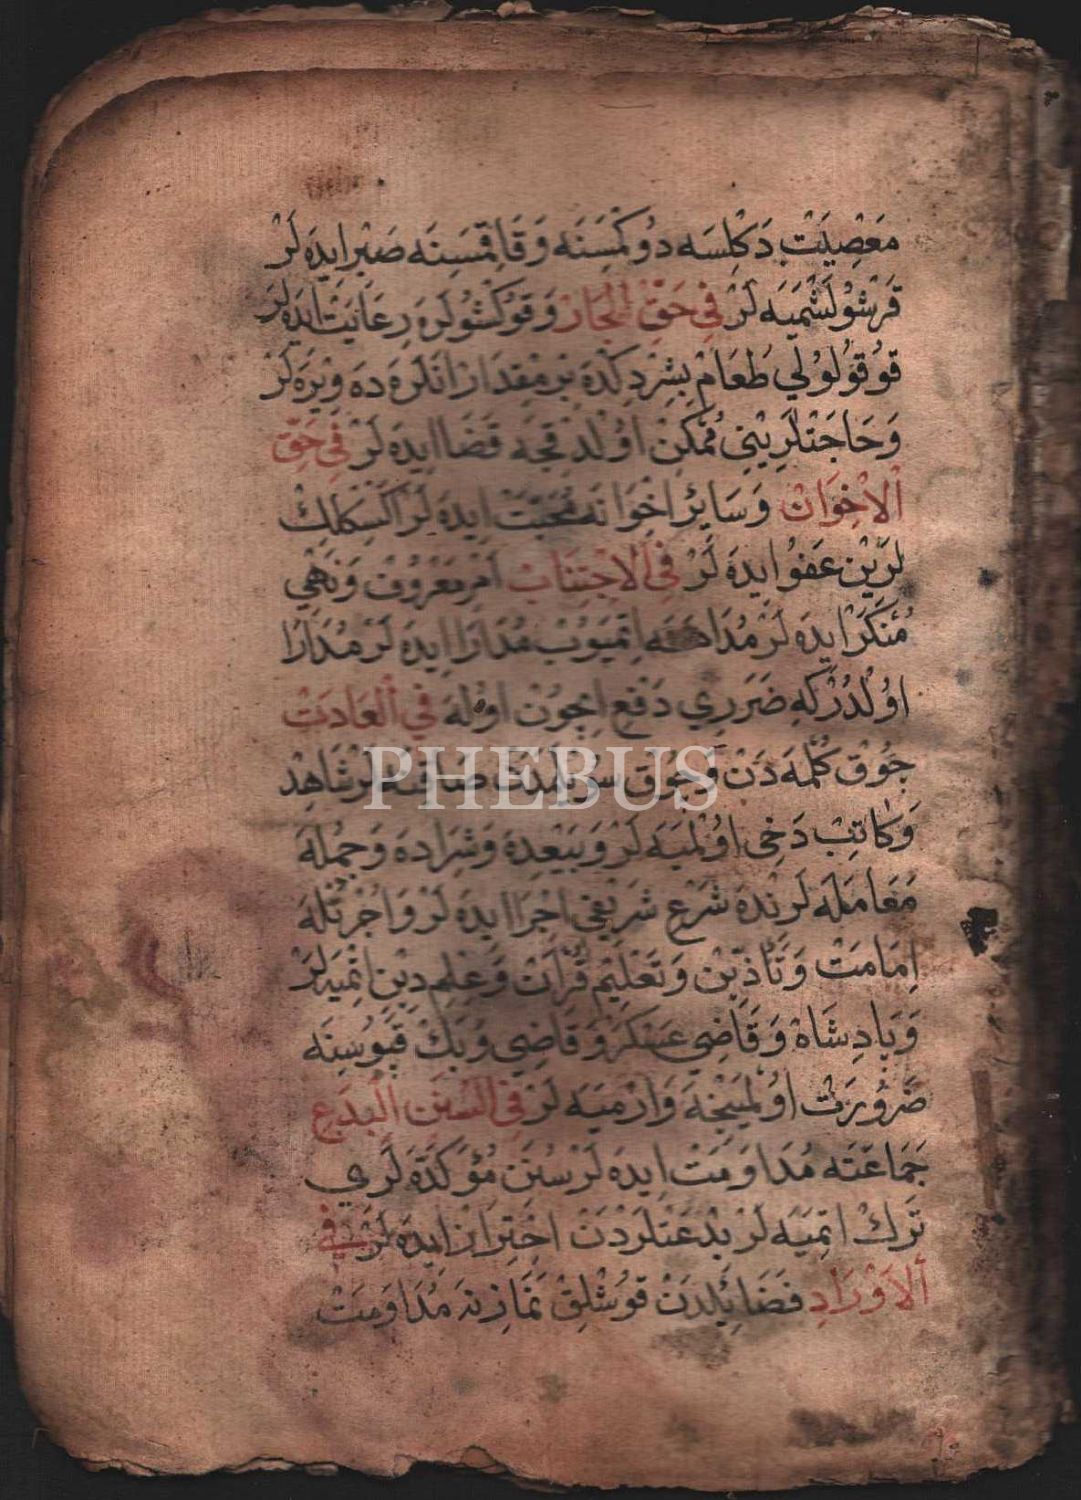 مَعْصِيَتْ دَكِلْسَه دُوكْمَسِنَه وَ قَاقِمَسِنَه صَبْرْ ايدَه لَرْ
قَرْشُولَشْمَيَه لَرْ فِي حَقِّ الْجَارْ وَ قُوكْشُولَرَه رِعَايَتْ ايدَه لَرْ
قُوقُولُو لِي طَعَامْ بِشِرْدِكْدَه بِرْ مِقْدَارْ انْلَرَه دَه وِيرَه لَرْ
وَ حَاجَتْلَرِينِي مُمْكِنْ اوُلْدُقْجَه قَضَا ايدَه لَرْ فِي حَقِّ
الْاِخْوَانْ وَ سَايِرْ اِخْوَانَه مُحَبَّتْ ايدَه لَرْ اَكْسِكْلِكْ
لَرِينْ عَفُو ايدَه لَرْ فِي الْاِجْتِنَابْ اَمْرِ مَعْرُوفْ وَ نَهْيِ
مُنْكَرْ ايدَه لَرْ مُدَاهَنَه اِتْمَيُوبْ مُدَارَا ايدَه لَرْ مُدَارَا
اوُلْدُرْكِه ضَرَرِي دَفْعِ اِچُونْ اوُلَه فِي الْعَادَتْ
چُوقْ كُلْمَه دَنْ وَ چُوقْ سُويْلَمَدَنْ صَاقِنَه لَرْ شَاهِدْ
وَ كَاتِبْ دَخِي اوُلْمَيَه لَرْ وَ بَيْعِدَه وَ شِرَادَه وَ جُمْلَه
مُعَامَلَه لَرِنْدَه شَرْعِ شَرِيفِي اِجْرَا ايدَه لَرْ وَ اُجْرَتْلَه
اِمَامَتْ وَ تَأْذِينْ وَ تَعْلِيمِ قُرْآنْ وَ عِلْمِ دِينْ اِتْمَيَه لَرْ
وَ پَادِشَاهْ وَ قَاضِي عَسْكَرْ وَ قَاضِي وَ بَكْ قَپُوسِنَه
ضَرُورَتْ اوُلْمَيِنْجَه وَارْمَيَه لَرْ فِي السُّنَنِ الْبِدَعِ
جَمَاعَتَه مُدَاوَمَتْ ايدَه لَرْ سُنَنِ مُؤَكَّدَه لَرِي
تَرْكْ اِتْمَيَه لَرْ بِدْعَتْلَرْدَنْ اِحْتِرَازْ ايدَه لَرْ فِي
اَلْاَوْرَادِ فَضَائِلْدَنْ قُوشْلِقْ نَمَازِنَه مُدَاوَمَتْ
PHEBUS